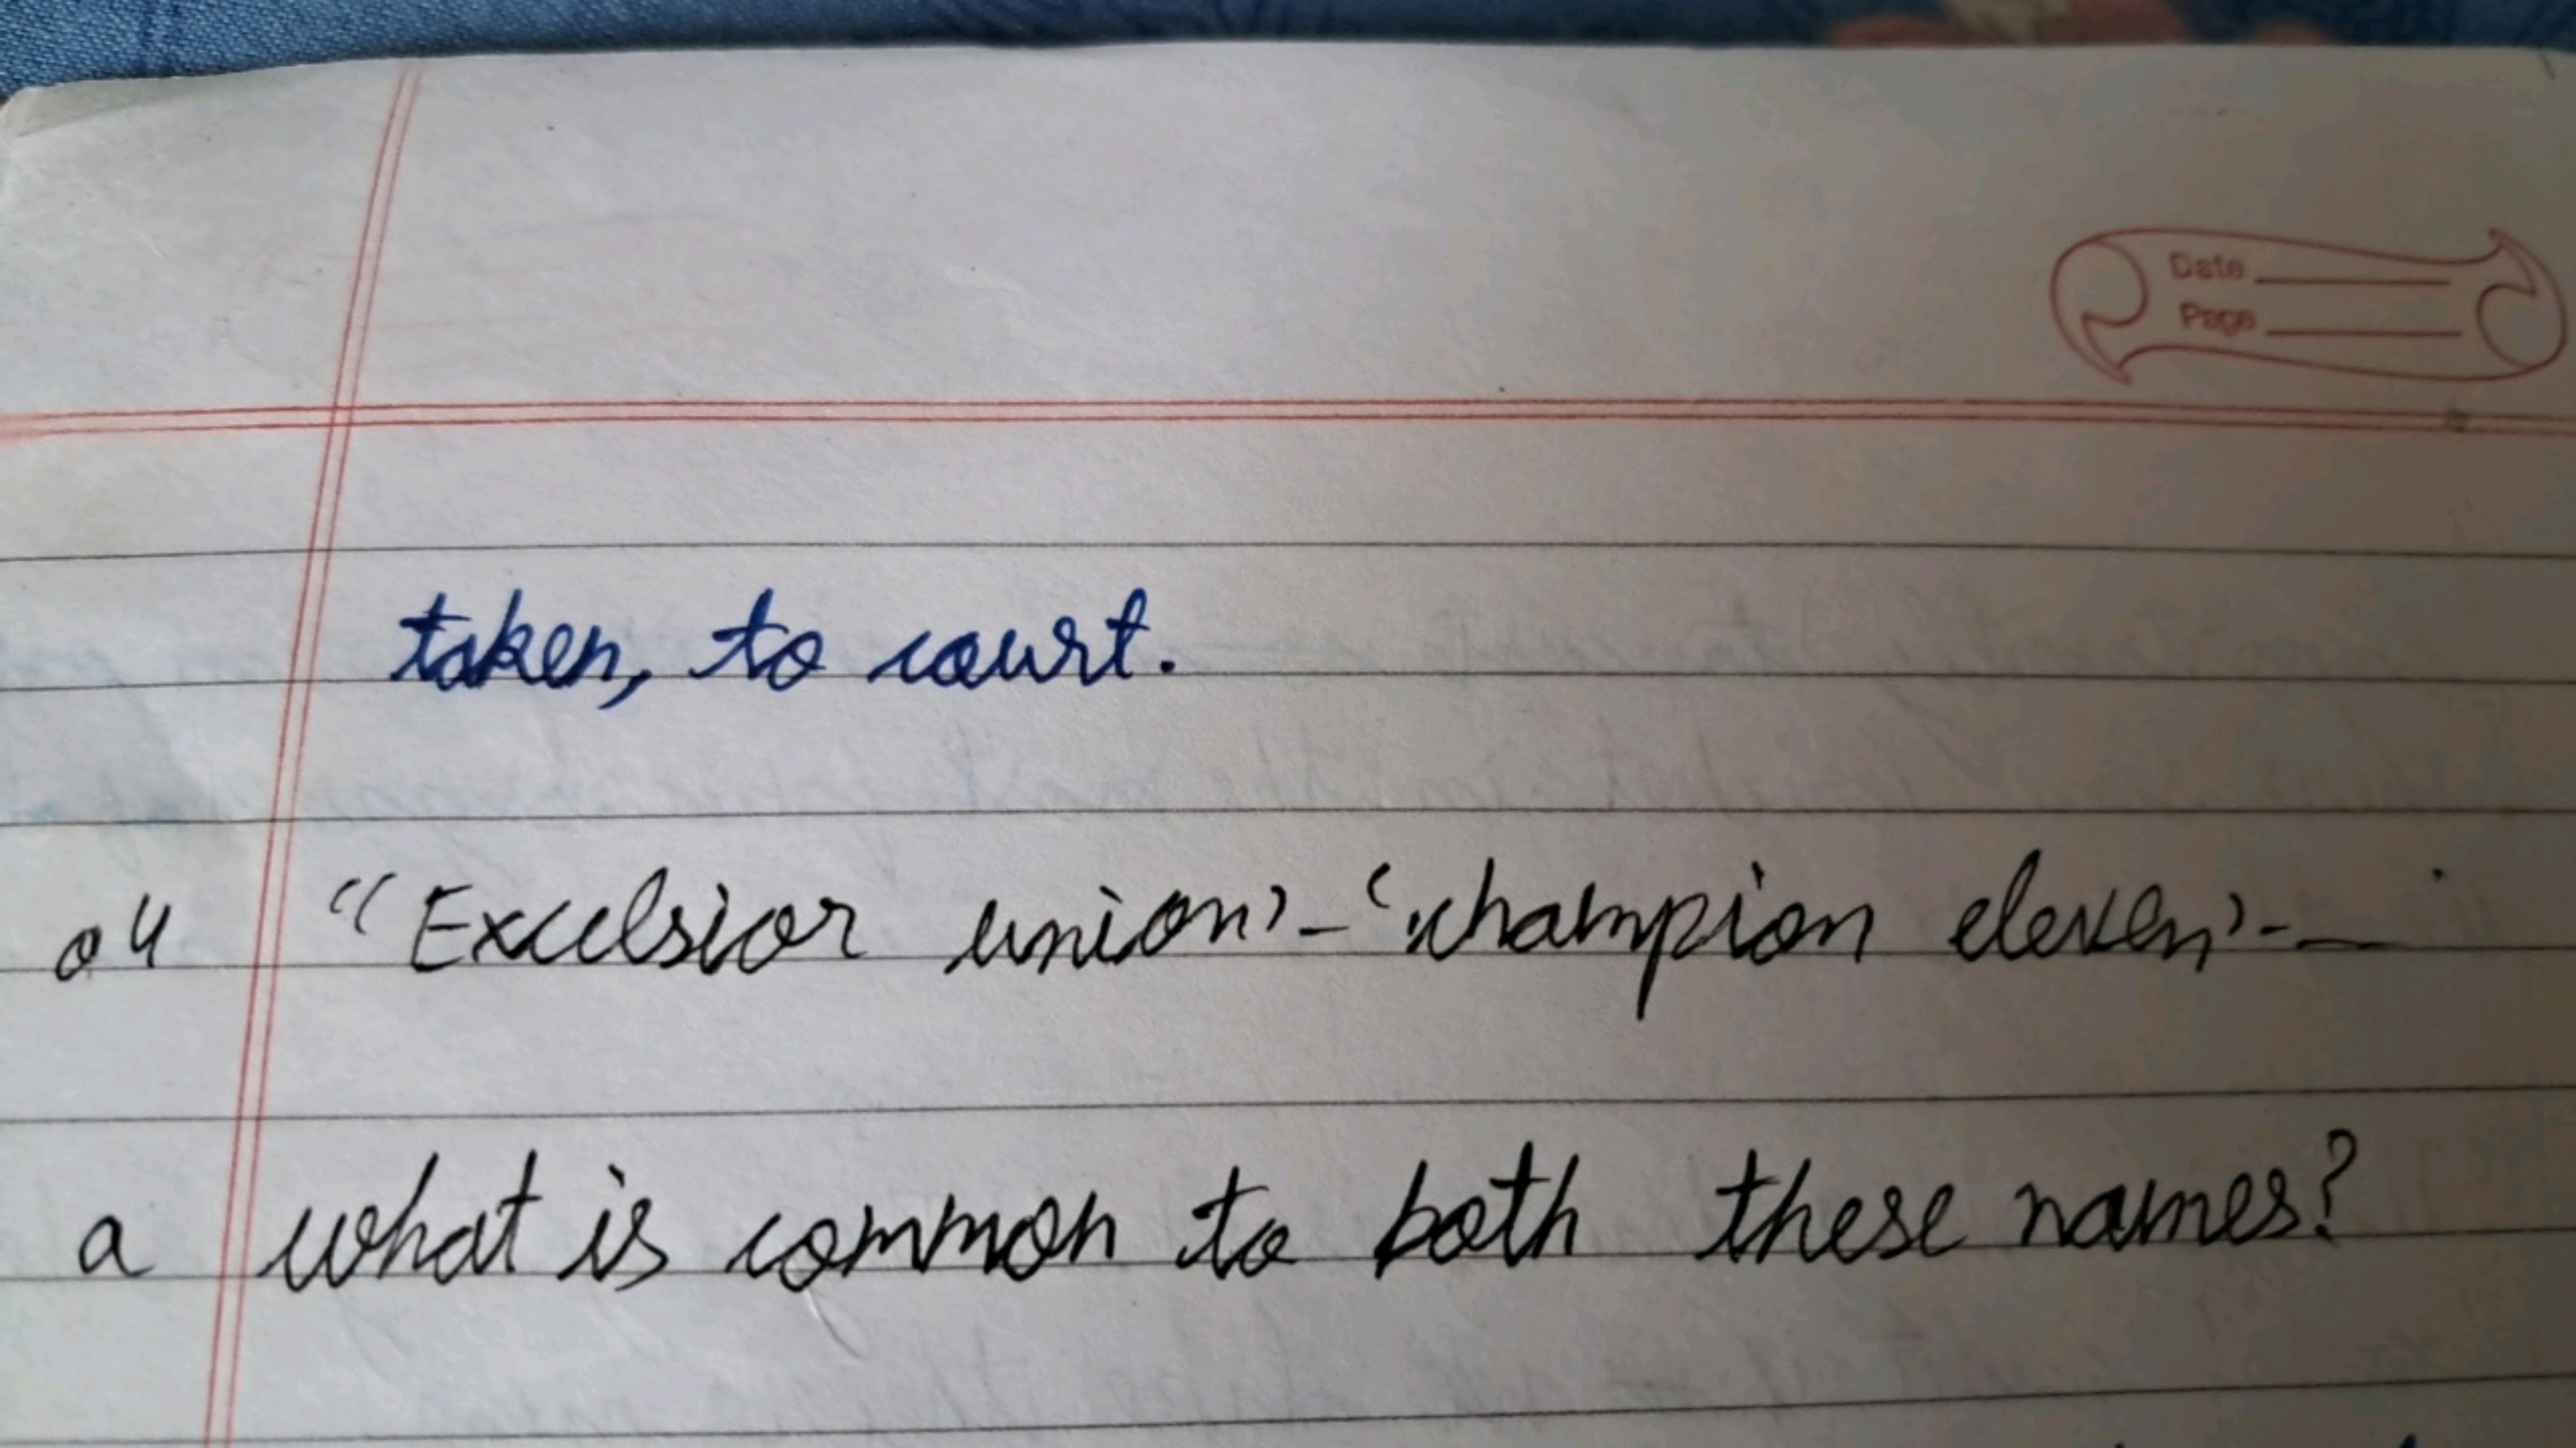 Date
Page
taken, to court.
04 "Excelsior union'-'champion eleven'-—
a what is common to both these names?